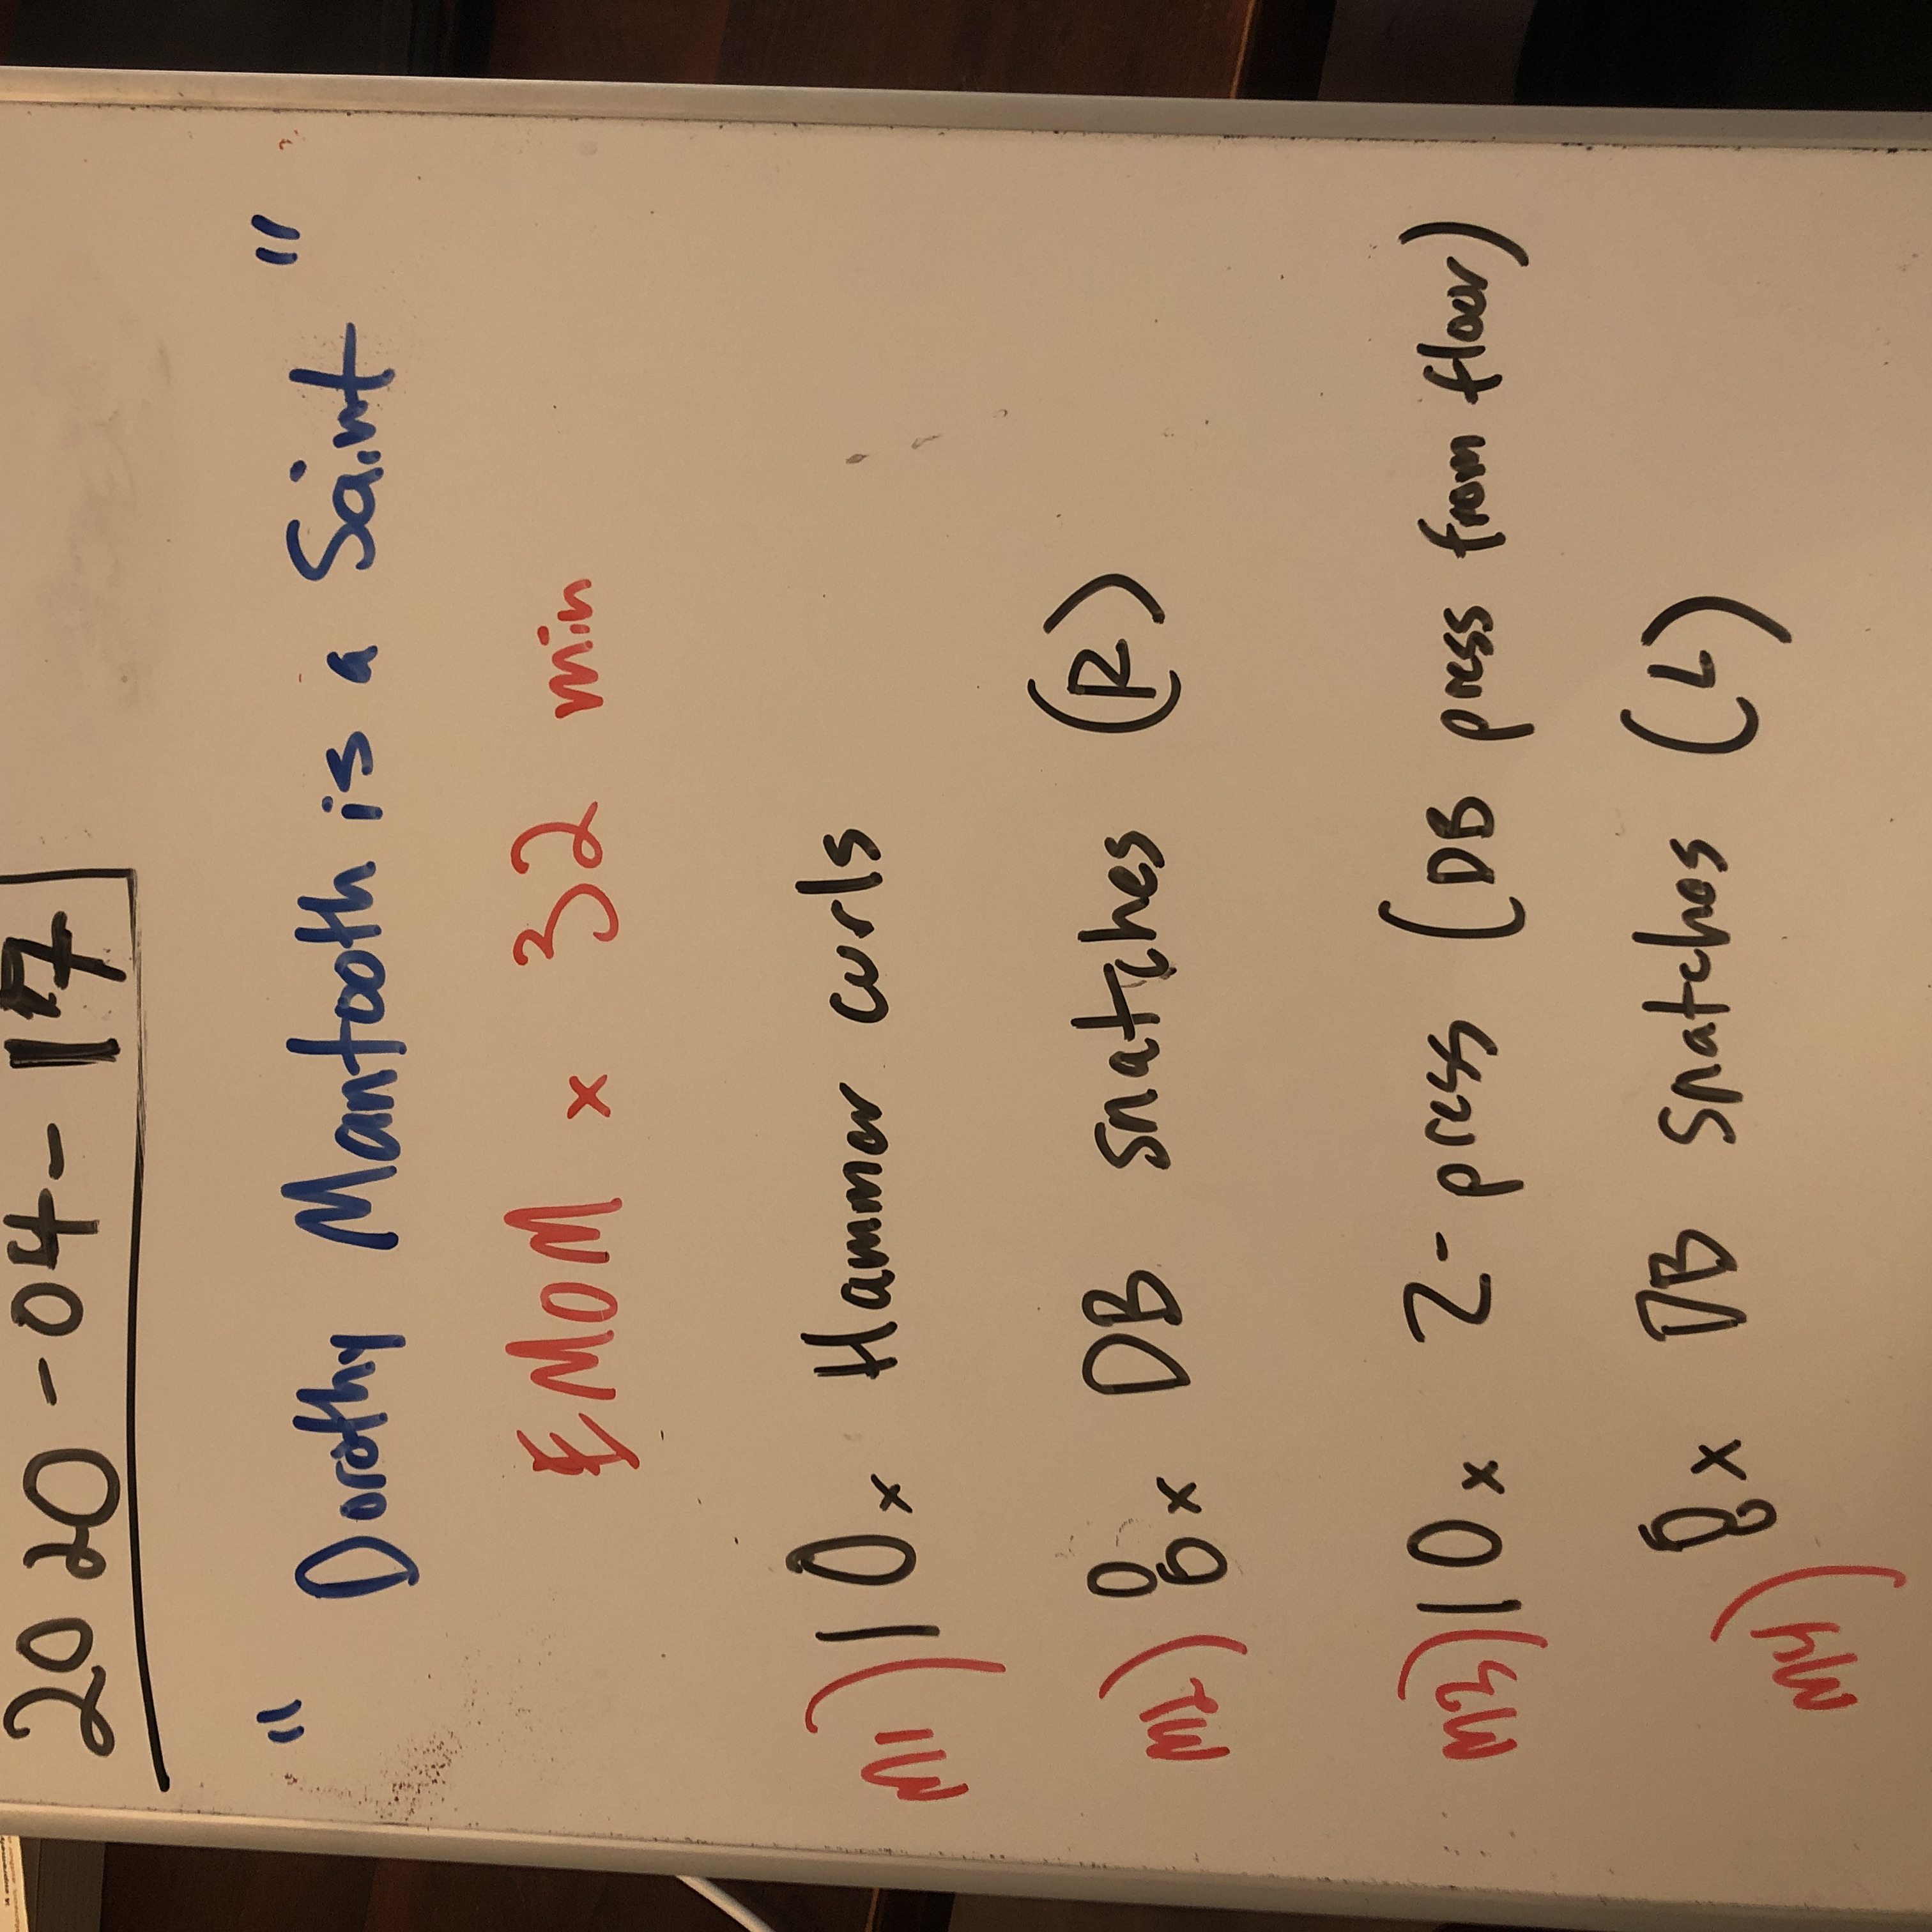 2020-04-17
" Dorothy Mantooth is a Saint "
EMOM x 32 min
M1) 10x Hammer curls
M2) 8x DB snatches (R)
M3) 10x Z-press (DB press from floor)
M4) 8x DB snatches (L)